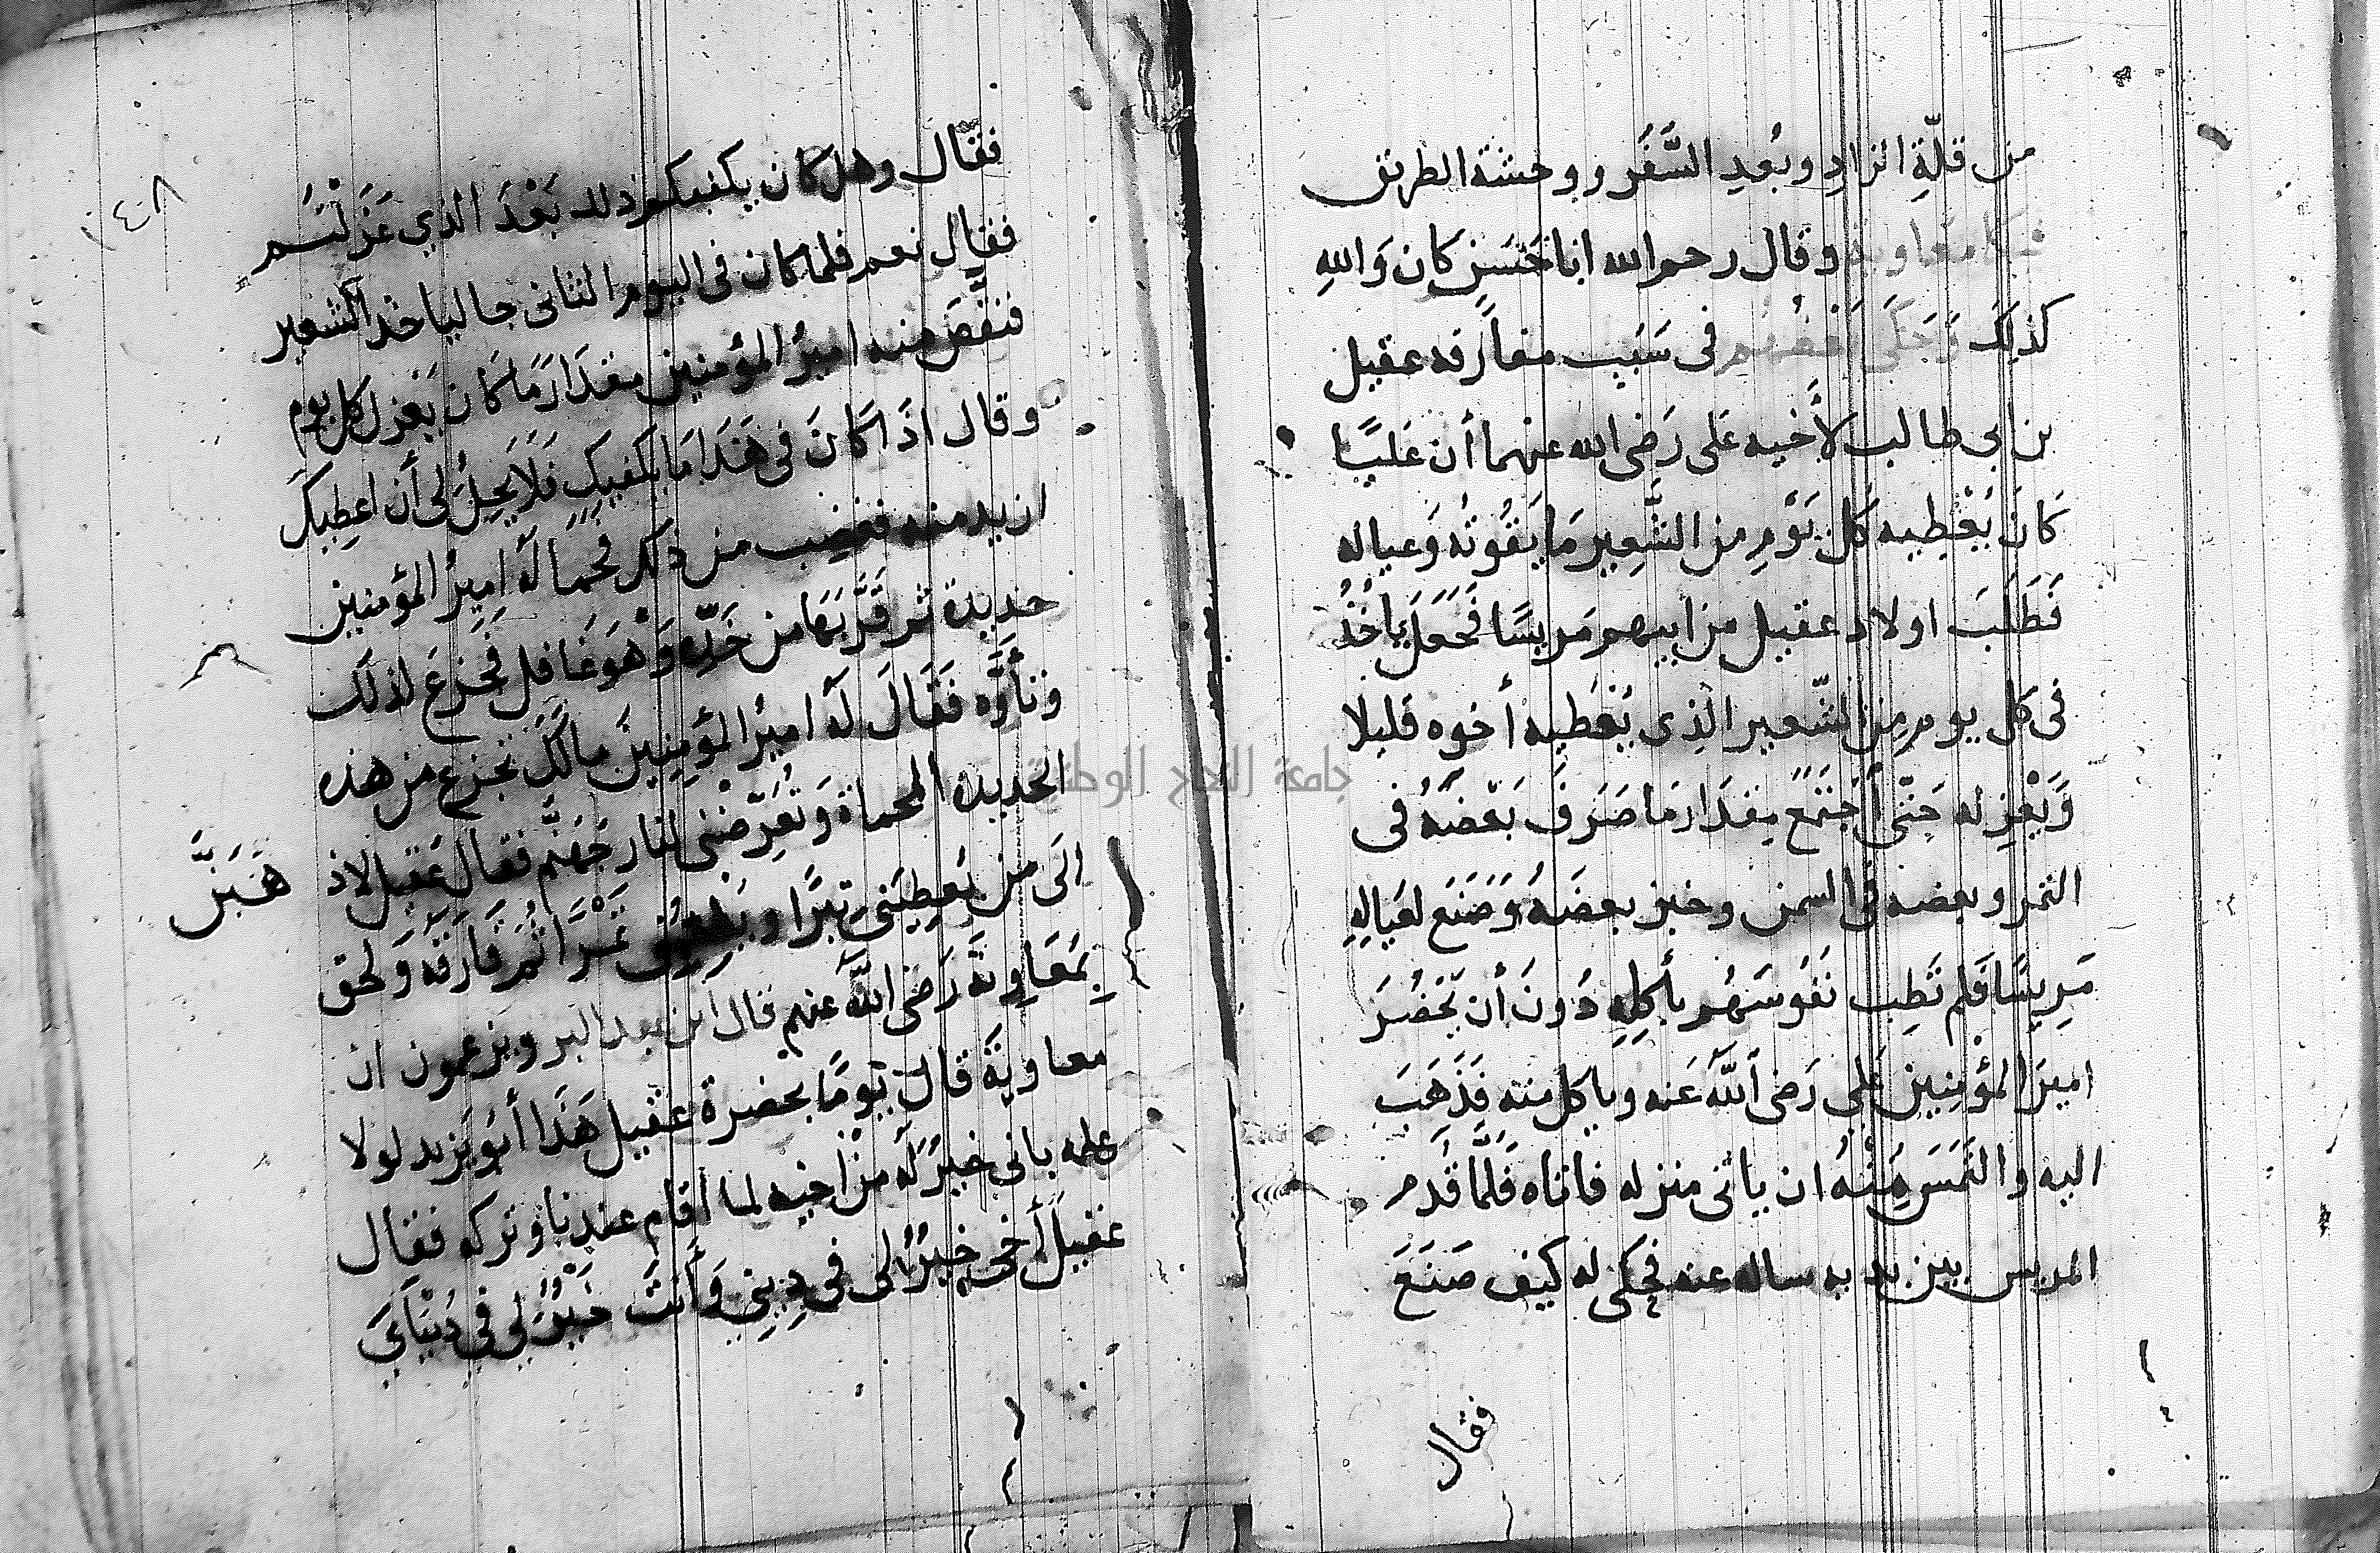 من قلّةِ الزادِ وبُعدِ السَّفَر ووحشة الطريق
فبكا معاوية وقال رحم الله اباحَسَنٍ كان وَاللهِ
كذلِكَ وَحَكَى بَعْضُهُم فى سَبَبِ مفارقه عقيل
بن ابى طالب لأخيه على رَضى الله عنهما أن عَليًا
كَانَ يُعْطِيه كل يَوْمٍ من الشَّعِير مَا يَقُوتُه وَعياله
فَطَلَبَ اولاد عقيل من ابيهم مَريسًا فَجَعَلَ ياخُذُ
فى كل يوم مِن الشّعير الَّذِى يُعْطيه أخوه قليلا
وَيَعْزِله حَتّى اجْتَمَعَ مِقدَار مَا صَرَفَ بَعْضَهُ فى
التمر وبعضه فى السمن وخبز بعضَهُ وَصَنَع لعيَالِهِ
مَرِيسًا فَلم تَطِب نفوسَهُم بأكلِهِ دُونَ أن يَحْضُرَ
اميرَ المؤمِنِين عَلِي رَضى اللَّه عَنه وياكل منه فَذَهَبَ
اليه والتَمَسَ مِنْهُ ان ياتى منزله فاتاه فَلمَّا قُدِم
المريس بين يديه ساله عنه فحكى له كيف صَنَعَ
فقال
١٤٨
فقال وهل كان يكفيكم ذلك بَعْدَ الذي عَزَلْتُم
فقال نعم فلما كان فى اليوم الثانى جا لياخذ الشعير
فنقَّصَ منه اميرُ المؤمنين مقدَار مَا كَان يَعْزل كل يوم
وقال اذَا كَانَ فى هَذَا مَا يكفيكَ فَلَا يَحِلُّ لى أن اعطِيكَ
ازيد منه فغضِب من ذلك فحمَا لَه اميرُ المؤمنين
حديدة ثم قَرَّبَهَا من خَدِّه وَهْوَ غافل فَجَزعَ لذلك
وتأَوَّه فَقَالَ لَه اميرُ المؤمِنِينَ مالَكَ تجزع من هذه
الحَديدة المحماة وَتُعَرِّضنى لنار جَهَنَّم فقال عَقِيل لاذ هَبَنَّ
الى من يُعطِينى تبرًا ويطعمنى تَمْرًا ثُمَّ فَارَقَهُ وَلحق
بِمُعَاوِيَة رَضى اللَّه عنهم قال ابن عبد البر ويزعمون ان
معاويَةَ قالَ يَومًا بحضرة عقيل هَذَا أبُو يَزيد لولا
علمه بانى خيرُ لَه من اخيه لما أقام عندنا وتركه فقال
عقيل أخى خيرُ لى فى دِينِى وَأنتَ خَيْرُ لِى فى دُنْيَايَ
جامعة النجاح الوطنية